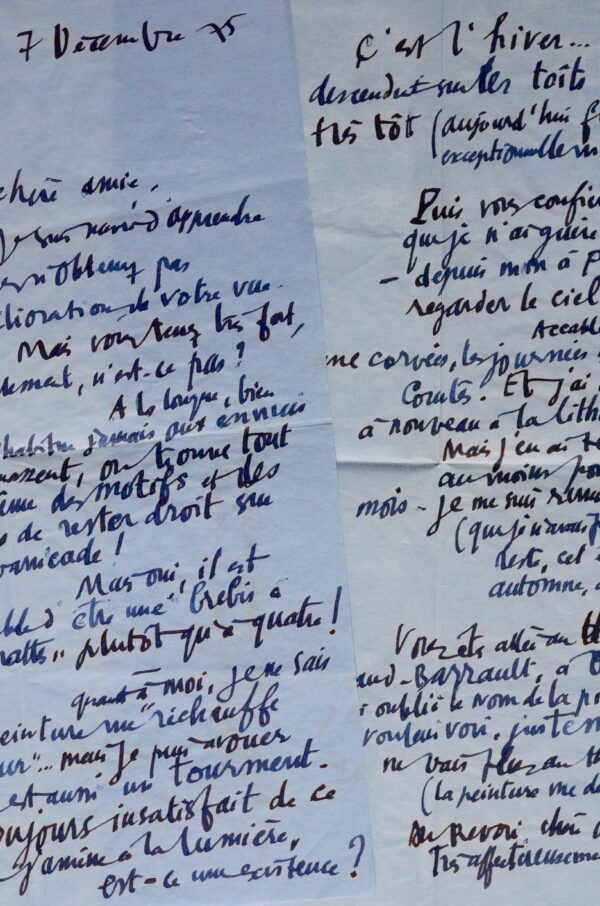 7 Décembre 75
chère amie,
Je suis navré d'apprendre
obtenez pas
élioration de votre vue.
Mais vous tenez très fort,
lement, n'est-ce pas ?
A la longue, bien
habitue jamais aux ennuis
massent, on trouve tout
ême des motifs et des
s de rester droit sur
barricade !
Mais oui, il est
able d'être une "brebis à
pattes" plutôt qu'à quatre !
quant à moi, je ne sais
peinture me "réchauffe
ur"... mais je puis avouer
est aussi un tourment.
oujours insatisfait de ce
j'amène à la lumière,
est-ce une existence ?
C'est l'hiver...
descendent sur les toits
très tôt (aujourd'hui f
exceptionnellem
Puis vous confier
que je n'ai guère
- depuis mon à p
regarder le ciel
Accabl
me corvées, les journées
Courtes. Et j'ai
à nouveau à la lith
Mais j'en ai te
au moins pour
mois - je me suis rem
(que je n'avais p
reste, cet é
automne, a
Vous êts allée au th
aud-Barrault, à
oublié le nom de la pi
voulais voir, justem
ne vais plus au th
(la peinture me d
Au revoir, chère a
très affectueuseme